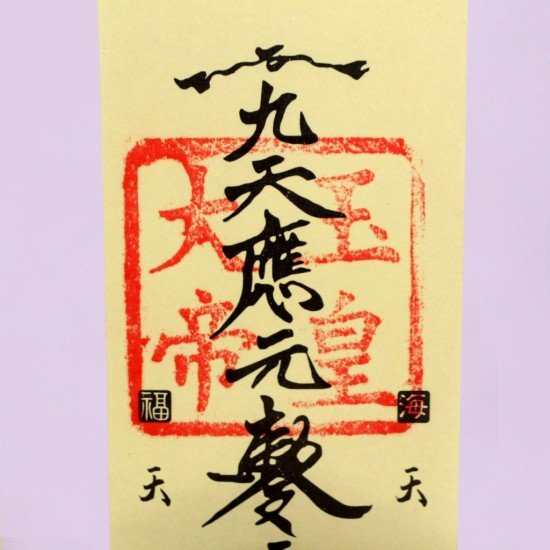 九天應元
玉皇
大帝
海
福
天
天